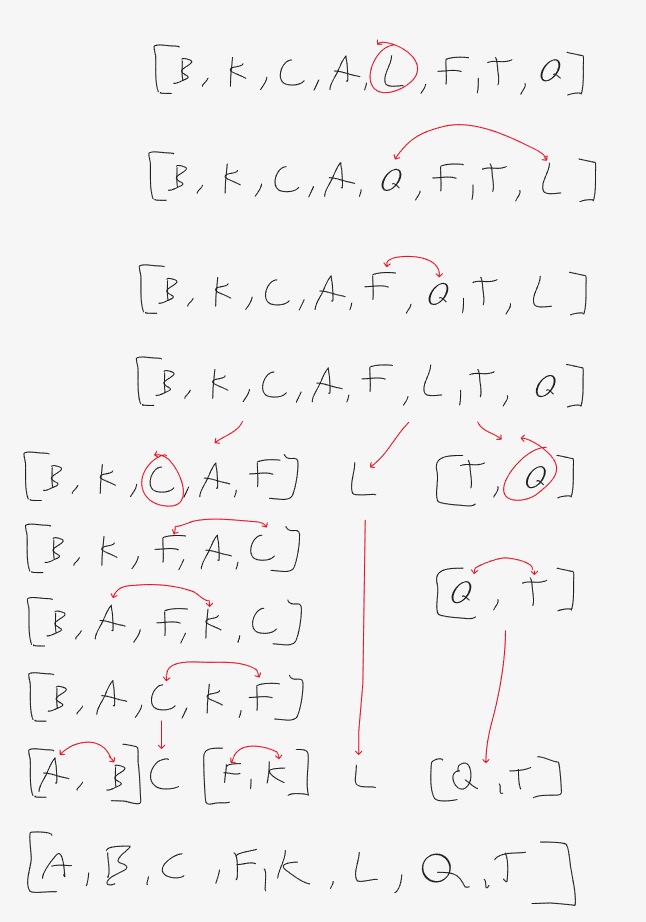 [B, K, C, A, L, F, T, Q]
[B, K, C, A, Q, F, T, L]
[B, K, C, A, F, Q, T, L]
[B, K, C, A, F, L, T, Q]
[B, K, C, A, F] L [T, Q]
[B, K, F, A, C]
[Q, T]
[B, A, F, K, C]
[B, A, C, K, F]
[A, B] C [F, K] L [Q, T]
[A, B, C, F, K, L, Q, T]